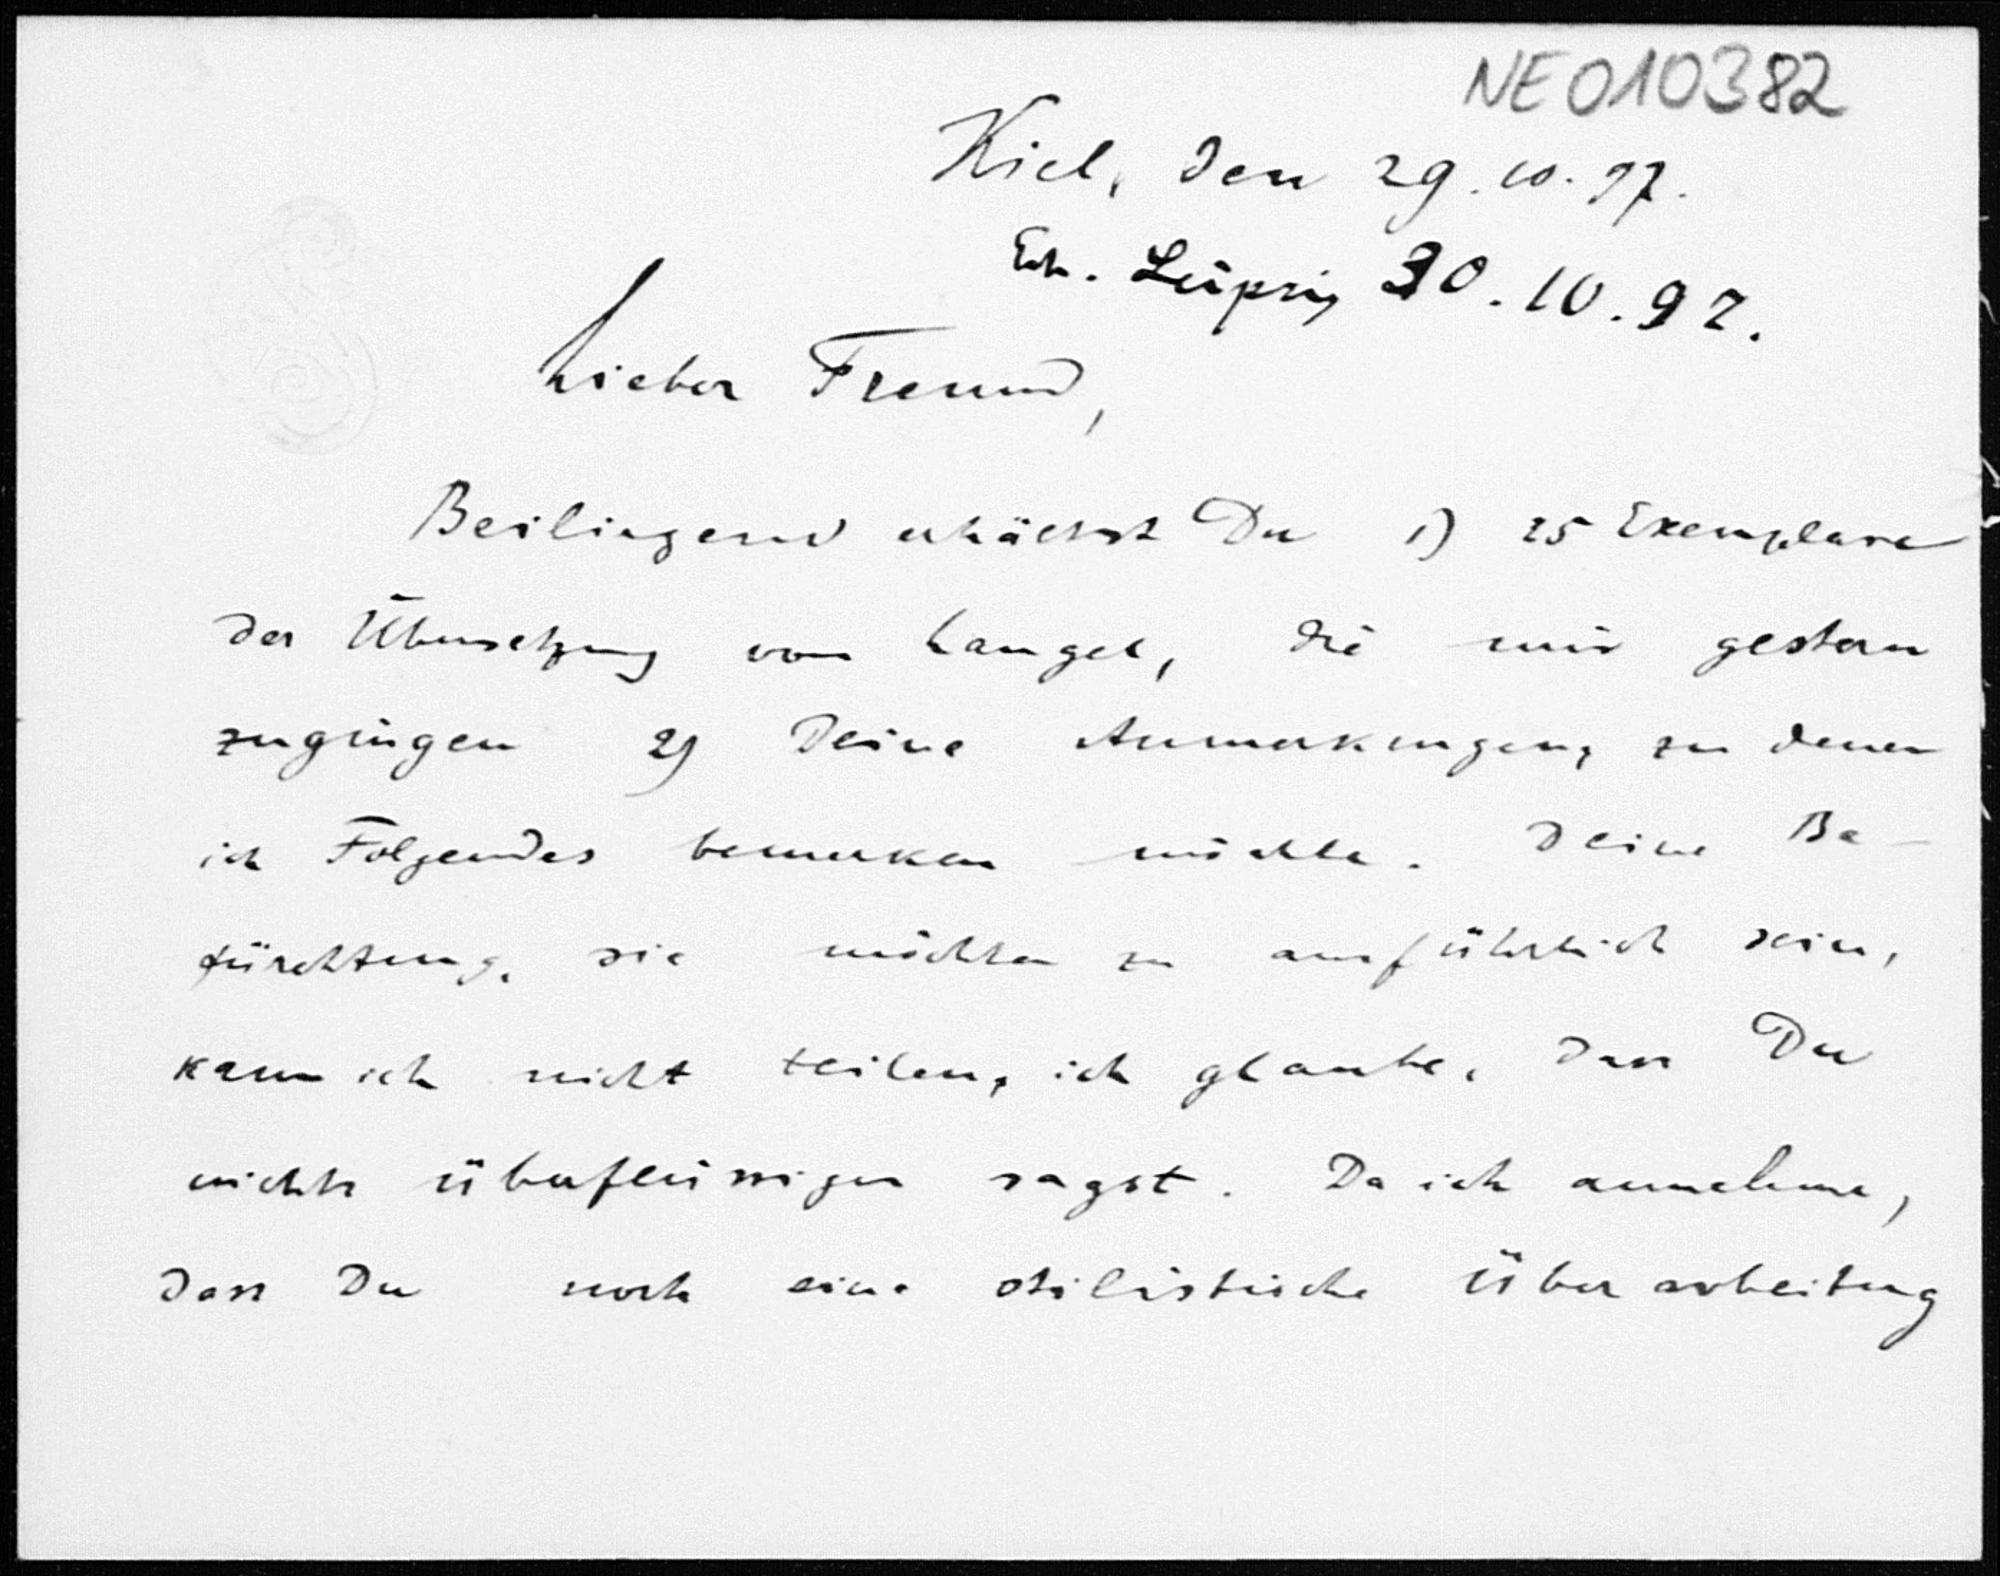 NE010382
Kiel, den 29. 10. 97.
Erh. Leipzig 30. 10. 97.
Lieber Freund,
Beiliegend erhältst Du 1) 25 Exemplare
der Übersetzung von Laugel, die mir gestern
zugingen 2) Deine Anmerkungen, zu denen
ich Folgendes bemerken möchte. Deine Be-
fürchtung, sie möchten zu ausführlich sein,
kann ich nicht teilen, ich glaube, dass Du
nichts überflüssiges sagst. Da ich annehme,
dass Du noch eine stilistische Überarbeitung